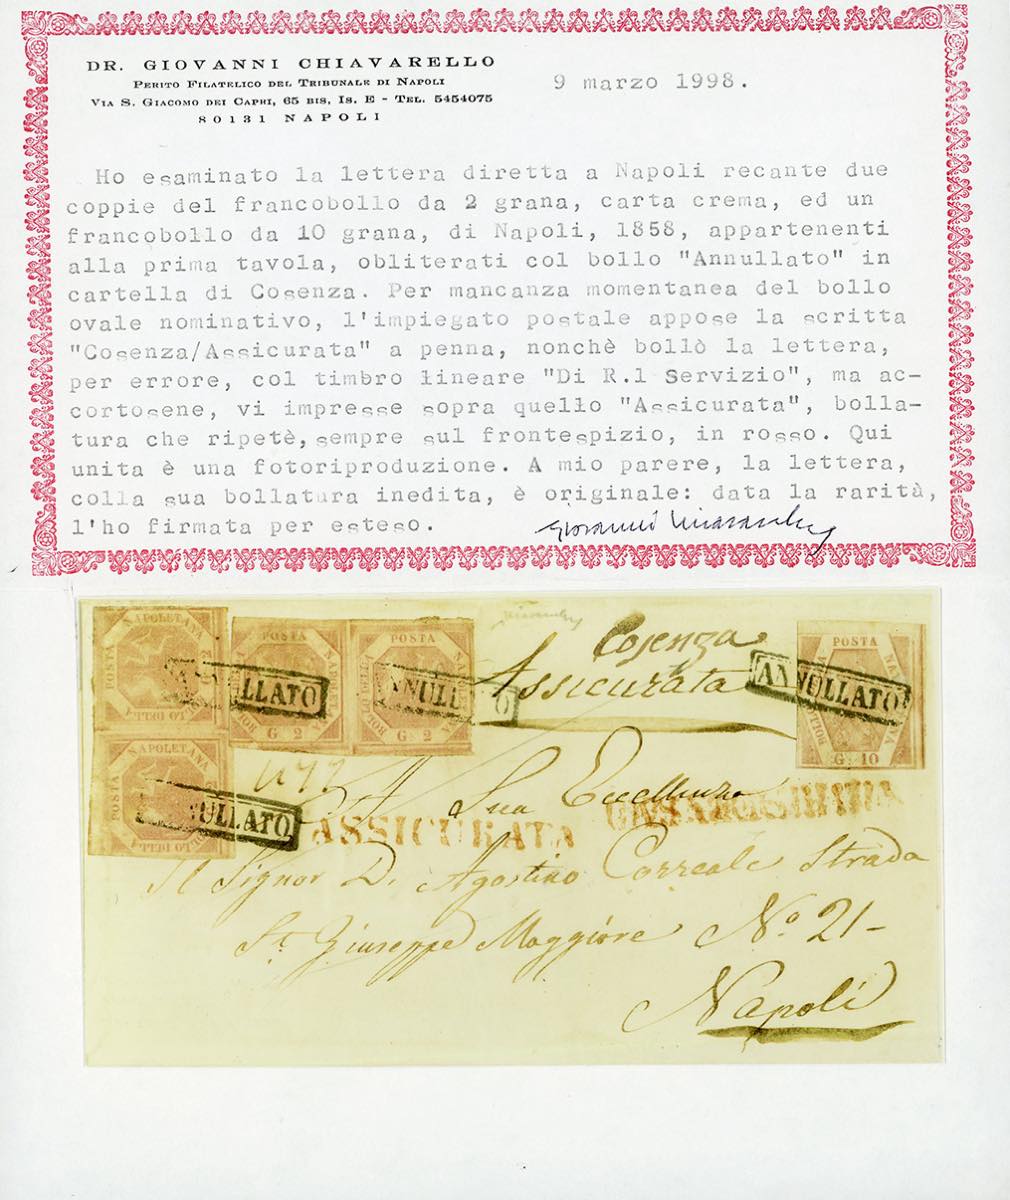 DR. GIOVANNI CHIAVARELLO
PERITO FILATELICO DEL TRIBUNALE DI NAPOLI
VIA S. GIACOMO DEI CAPRI, 65 BIS, IS. E - TEL. 5454075
80131 NAPOLI
9 marzo 1998.
Ho esaminato la lettera diretta a Napoli recante due
coppie del francobollo da 2 grana, carta crema, ed un
francobollo da 10 grana, di Napoli, 1858, appartenenti
alla prima tavola, obliterati col bollo "Annullato" in
cartella di Cosenza. Per mancanza momentanea del bollo
ovale nominativo, l'impiegato postale appose la scritta
"Cosenza/Assicurata" a penna, nonchè bollò la lettera,
per errore, col timbro lineare "Di R.l Servizio", ma ac-
cortosene, vi impresse sopra quello "Assicurata", bolla-
tura che ripetè, sempre sul frontespizio, in rosso. Qui
unita è una fotoriproduzione. A mio parere, la lettera,
colla sua bollatura inedita, è originale: data la rarità,
l'ho firmata per esteso.
POSTA NAPOLETANA BOLLO DELLA G. 2
POSTA NAPOLETANA BOLLO DELLA G. 2
POSTA BOLLO DELLA G. 2
POSTA NAPOLETANA BOLLO DELLA
POSTA BOLLO G. 10
ANNULLATO
ANNULLATO
ANNULLATO
ANNULLATO
Cosenza
Assicurata
A Sua Eccellenza
ASSICURATA
Il Signor D. Agostino Correale Strada
S.t Giuseppe Maggiore No. 21-
Napoli